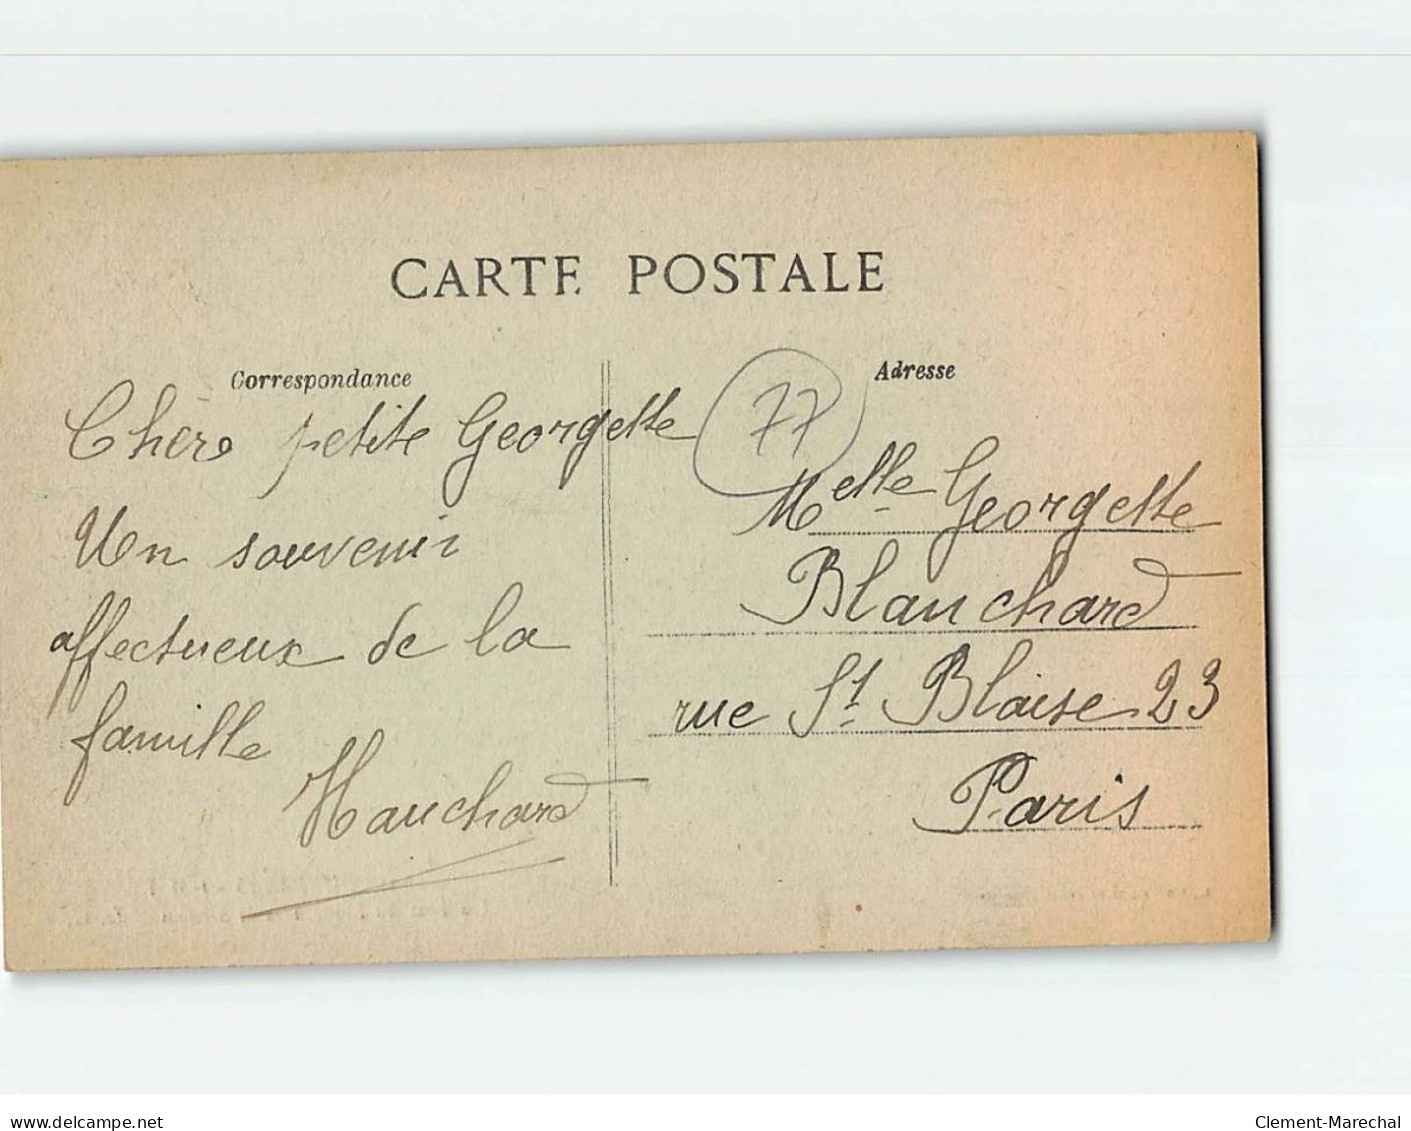 CARTE POSTALE
Correspondance
Chère petite Georgette
Un souvenir
affectueux de la
famille
Hauchard
Adresse
77
Melle Georgette
Blanchard
rue St Blaise 23
Paris
www.delcampe.net
Clement-Marechal